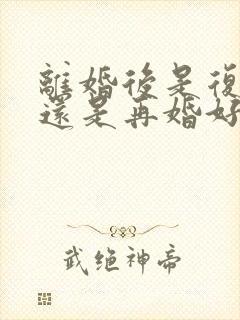 離婚後是復
還是再婚好
武绝神帝